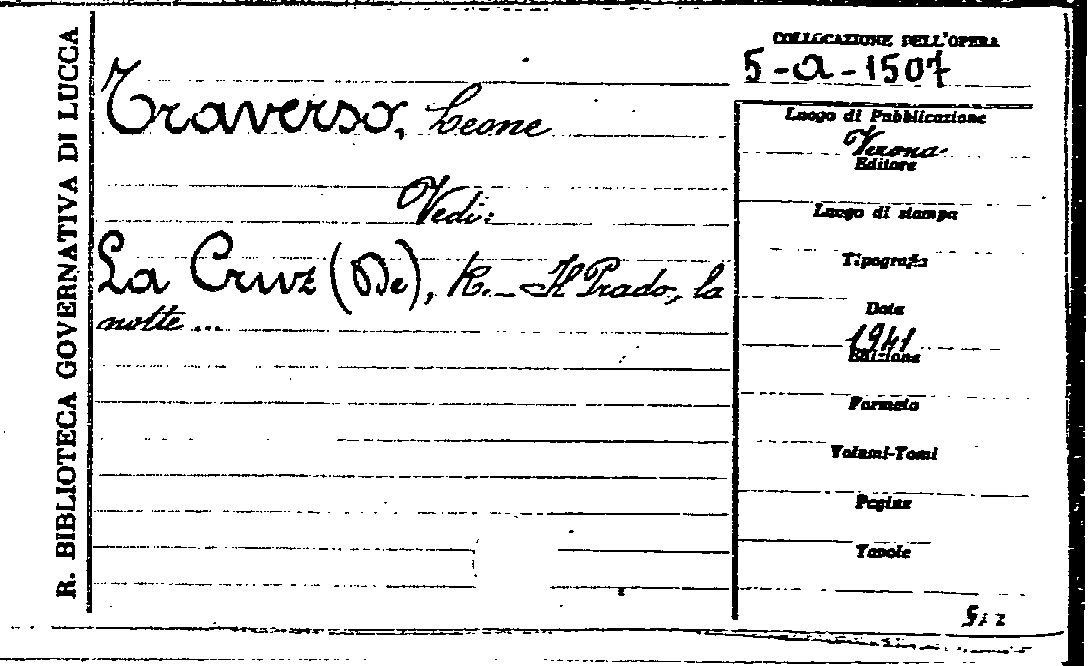 R. BIBLIOTECA GOVERNATIVA DI LUCCA
Traverso, Leone
Vedi:
La Cruz (De), R. - Il Prado, la
notte ...
COLLOCAZIONE DELL'OPERA
5-a-1507
Luogo di Pubblicazione
Verona
Editore
Luogo di stampa
Tipografia
Data
1941
Edizione
Formato
Volumi-Tomi
Pagine
Tavole